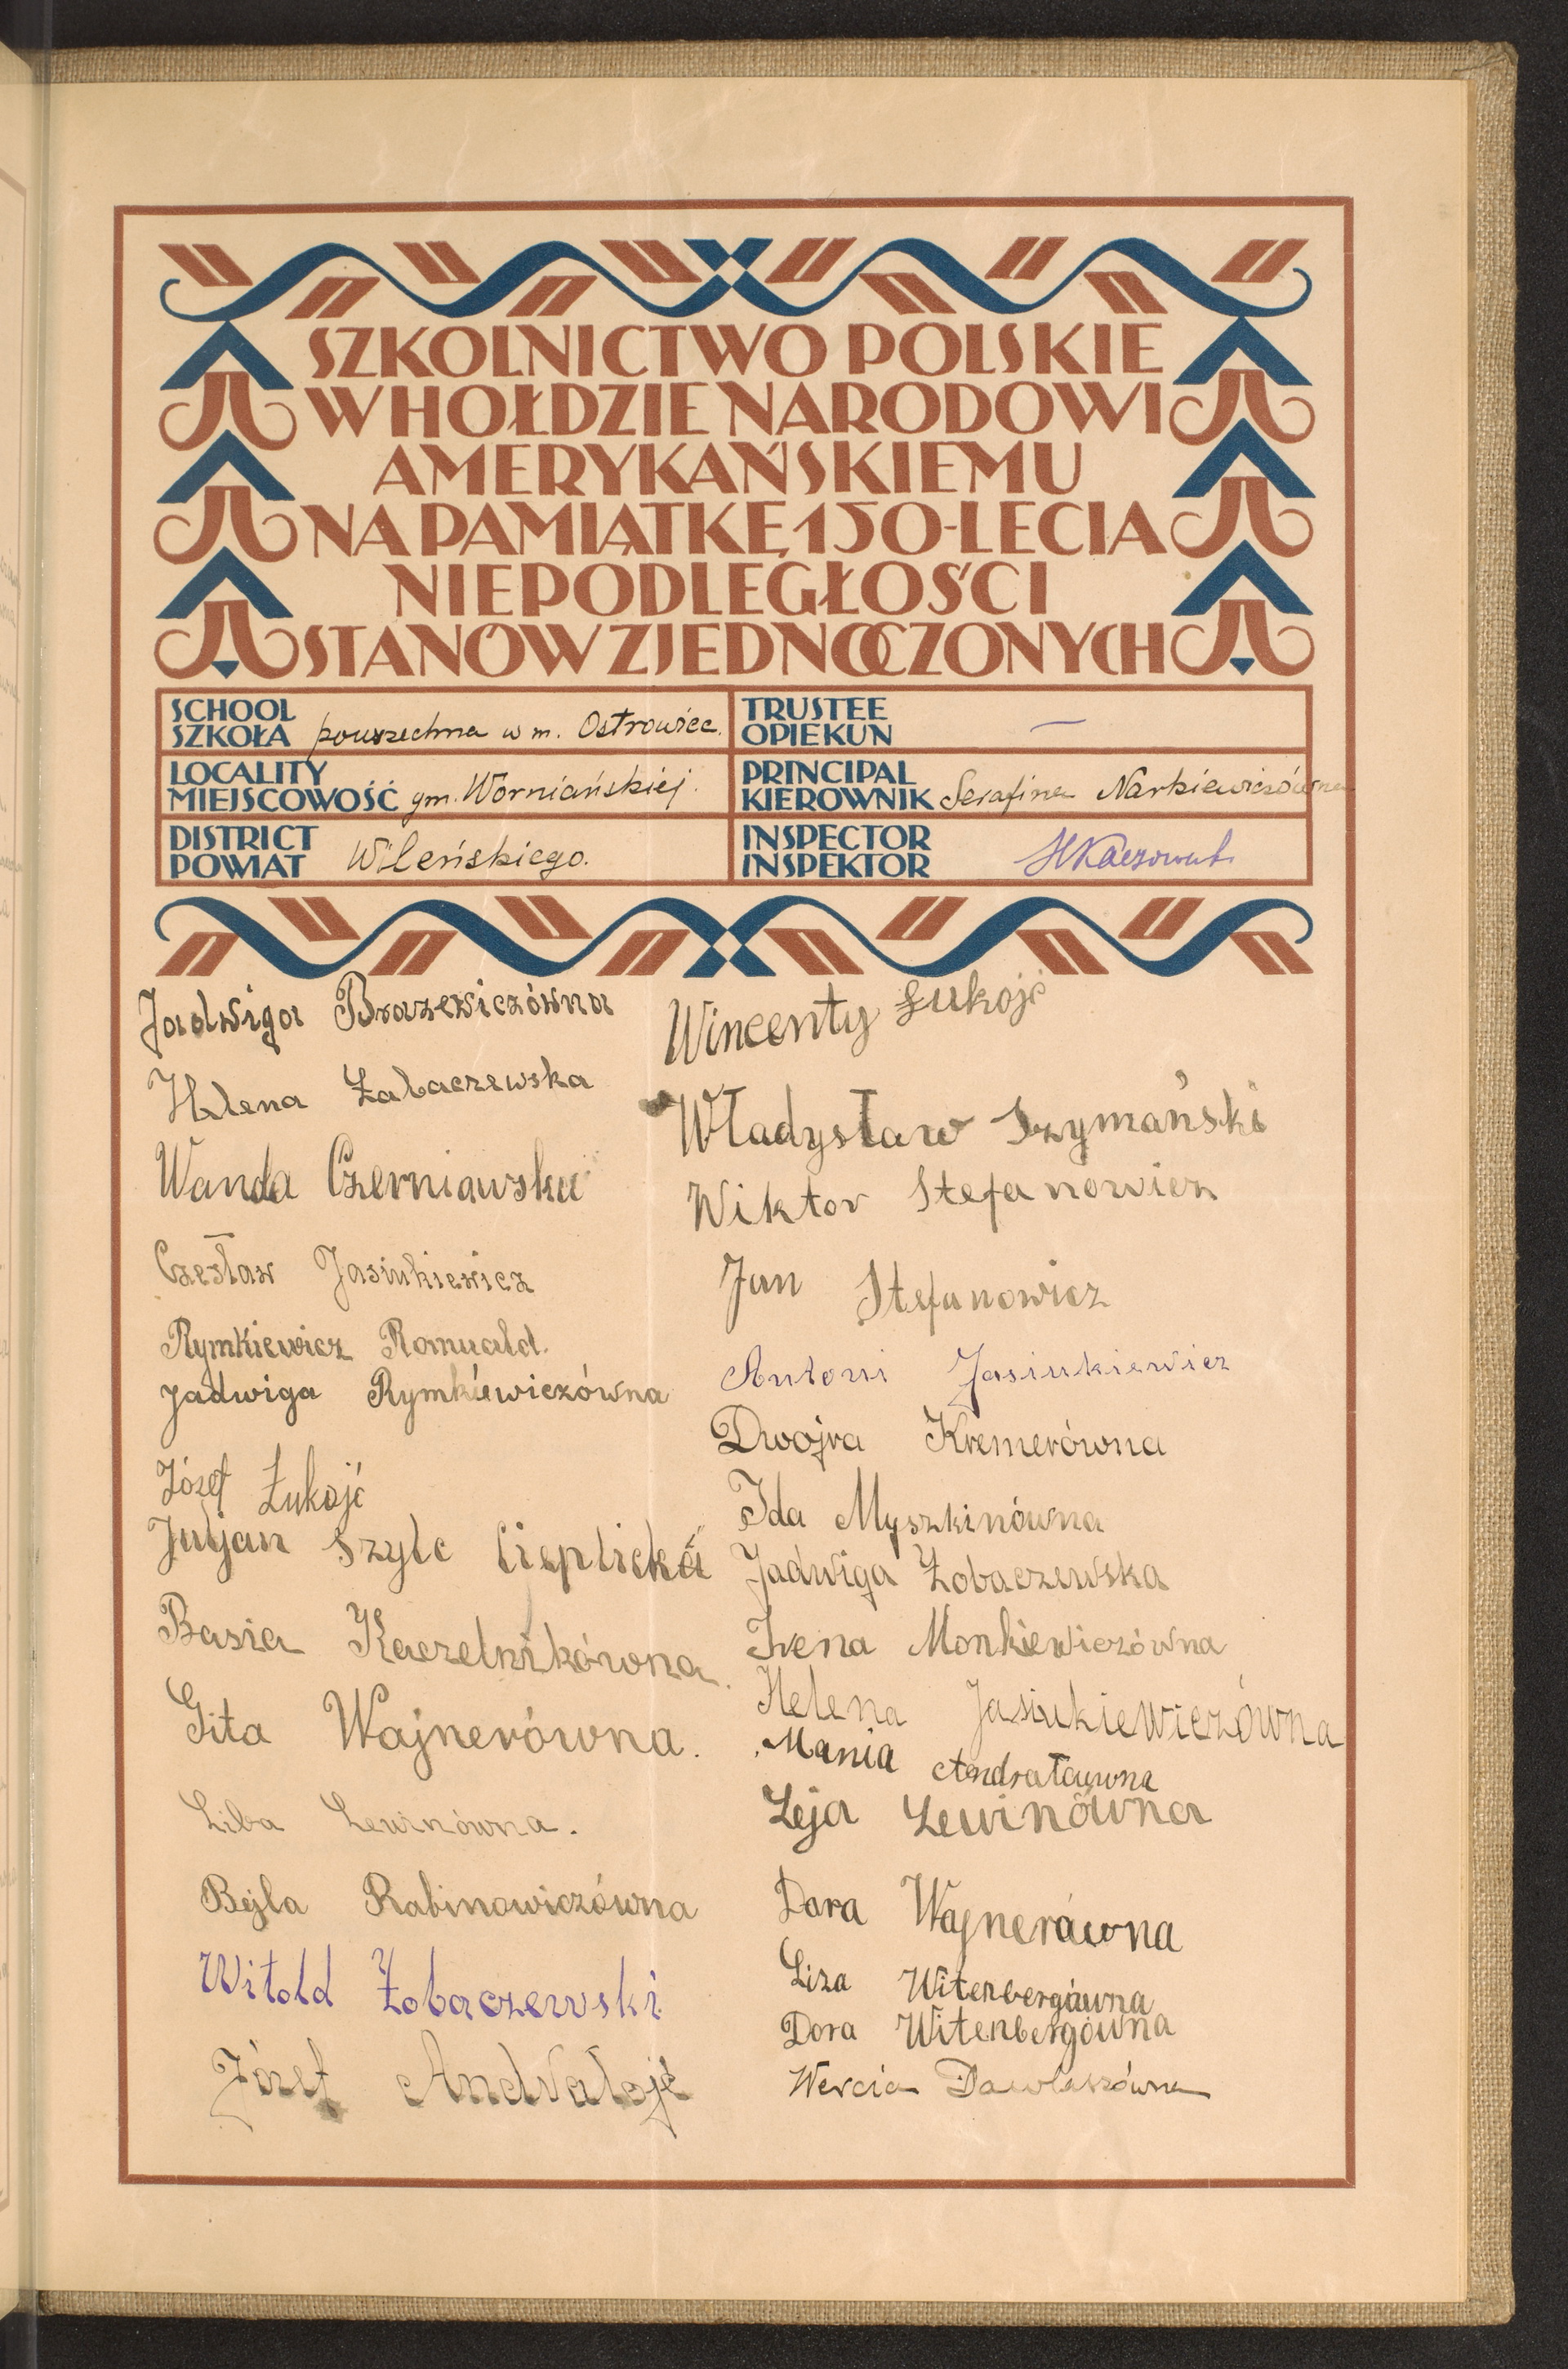 SZKOLNICTWO POLSKIE
W HOŁDZIE NARODOWI
AMERYKAŃSKIEMU
NA PAMIĄTKĘ 150-LECIA
NIEPODLEGŁOŚCI
STANÓW ZJEDNOCZONYCH
SCHOOL
SZKOŁA powszechna w m. Ostrowiec.
TRUSTEE
OPIEKUN —
LOCALITY
MIEJSCOWOŚĆ gm. Worniańskiej.
PRINCIPAL
KIEROWNIK Serafina Narkiewiczówna
DISTRICT
POWIAT Wileńskiego.
INSPECTOR
INSPEKTOR
Jadwiga Brazewiczówna
Helena Żabaczewska
Wanda Czerniawska
Czesław Jasiukiewicz
Rymkiewicz Romuald.
Jadwiga Rymkiewiczówna
Józef Łukojć
Juljan Szylc
Basia Kaczelnikówna.
Gita Wajnerówna.
Liba Lewinówna.
Bejla Rabinowiczówna
Witold Żobaczewski
Józef Andrałojć
Wincenty Łukojć
Władysław Szymański
Wiktor Stefanowicz
Jan Stefanowicz
Antoni Jasiukiewicz
Dwojra Kremerówna
Ida Myszkinówna
Jadwiga Żobaczewska
Irena Monkiewiczówna
Helena Jasiukiewiczówna
Mania
Leja Lewinówna
Dora Wajnerówna
Liza Witenbergówna
Dora Witenbergówna
Wercia